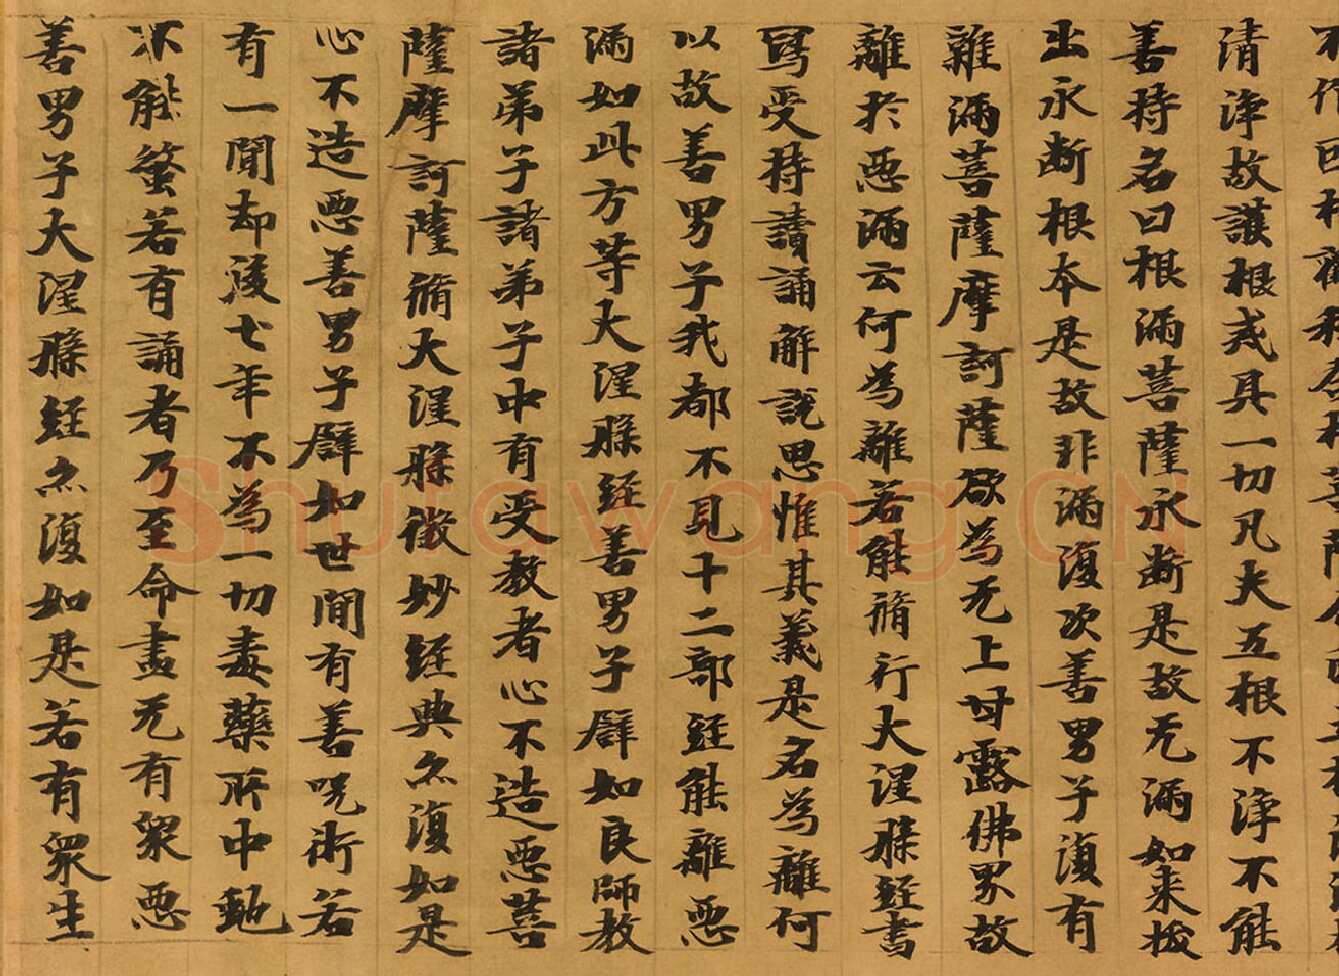 清淨故護根戒具一切凡夫五根不淨不能
善持名曰根漏菩薩永斷是故无漏如来拔
出永斷根本是故非漏復次善男子復有
離漏菩薩摩訶薩欲為无上甘露佛界故
離於惡漏云何為離若能脩行大涅槃經書
寫受持讀誦解說思惟其義是名為離何
以故善男子我都不見十二部經能離惡
漏如此方等大涅槃經善男子譬如良師教
諸弟子諸弟子中有受教者心不造惡菩
薩摩訶薩脩大涅槃微妙經典亦復如是
心不造惡善男子譬如世間有善呪術若
有一聞却後七年不為一切毒藥所中虵
不能螫若有誦者乃至命盡无有眾惡
善男子大涅槃經亦復如是若有眾生
Shutawang.CN